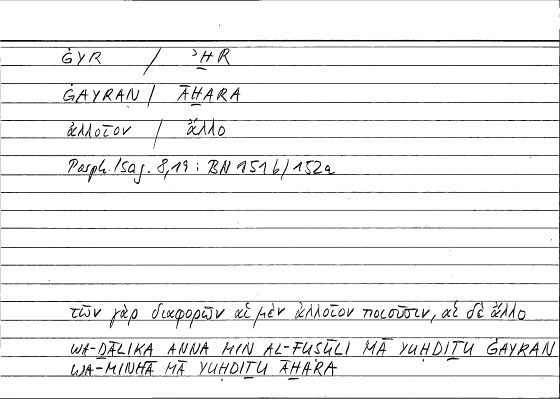 ĠYR / ʾḪR
ĠAYRAN / ĀḪARA
ἀλλοῖον / ἄλλο
Porph. Isag. 8,19 : BN 151b/152a
τῶν γὰρ διαφορῶν αἱ μὲν ἀλλοῖον ποιοῦσιν, αἱ δὲ ἄλλο
WA-ḎĀLIKA ANNA MIN AL-FUṢŪLI MĀ YUḤDIṮU ĠAYRAN
WA-MINHĀ MĀ YUḤDIṮU ĀḪARA